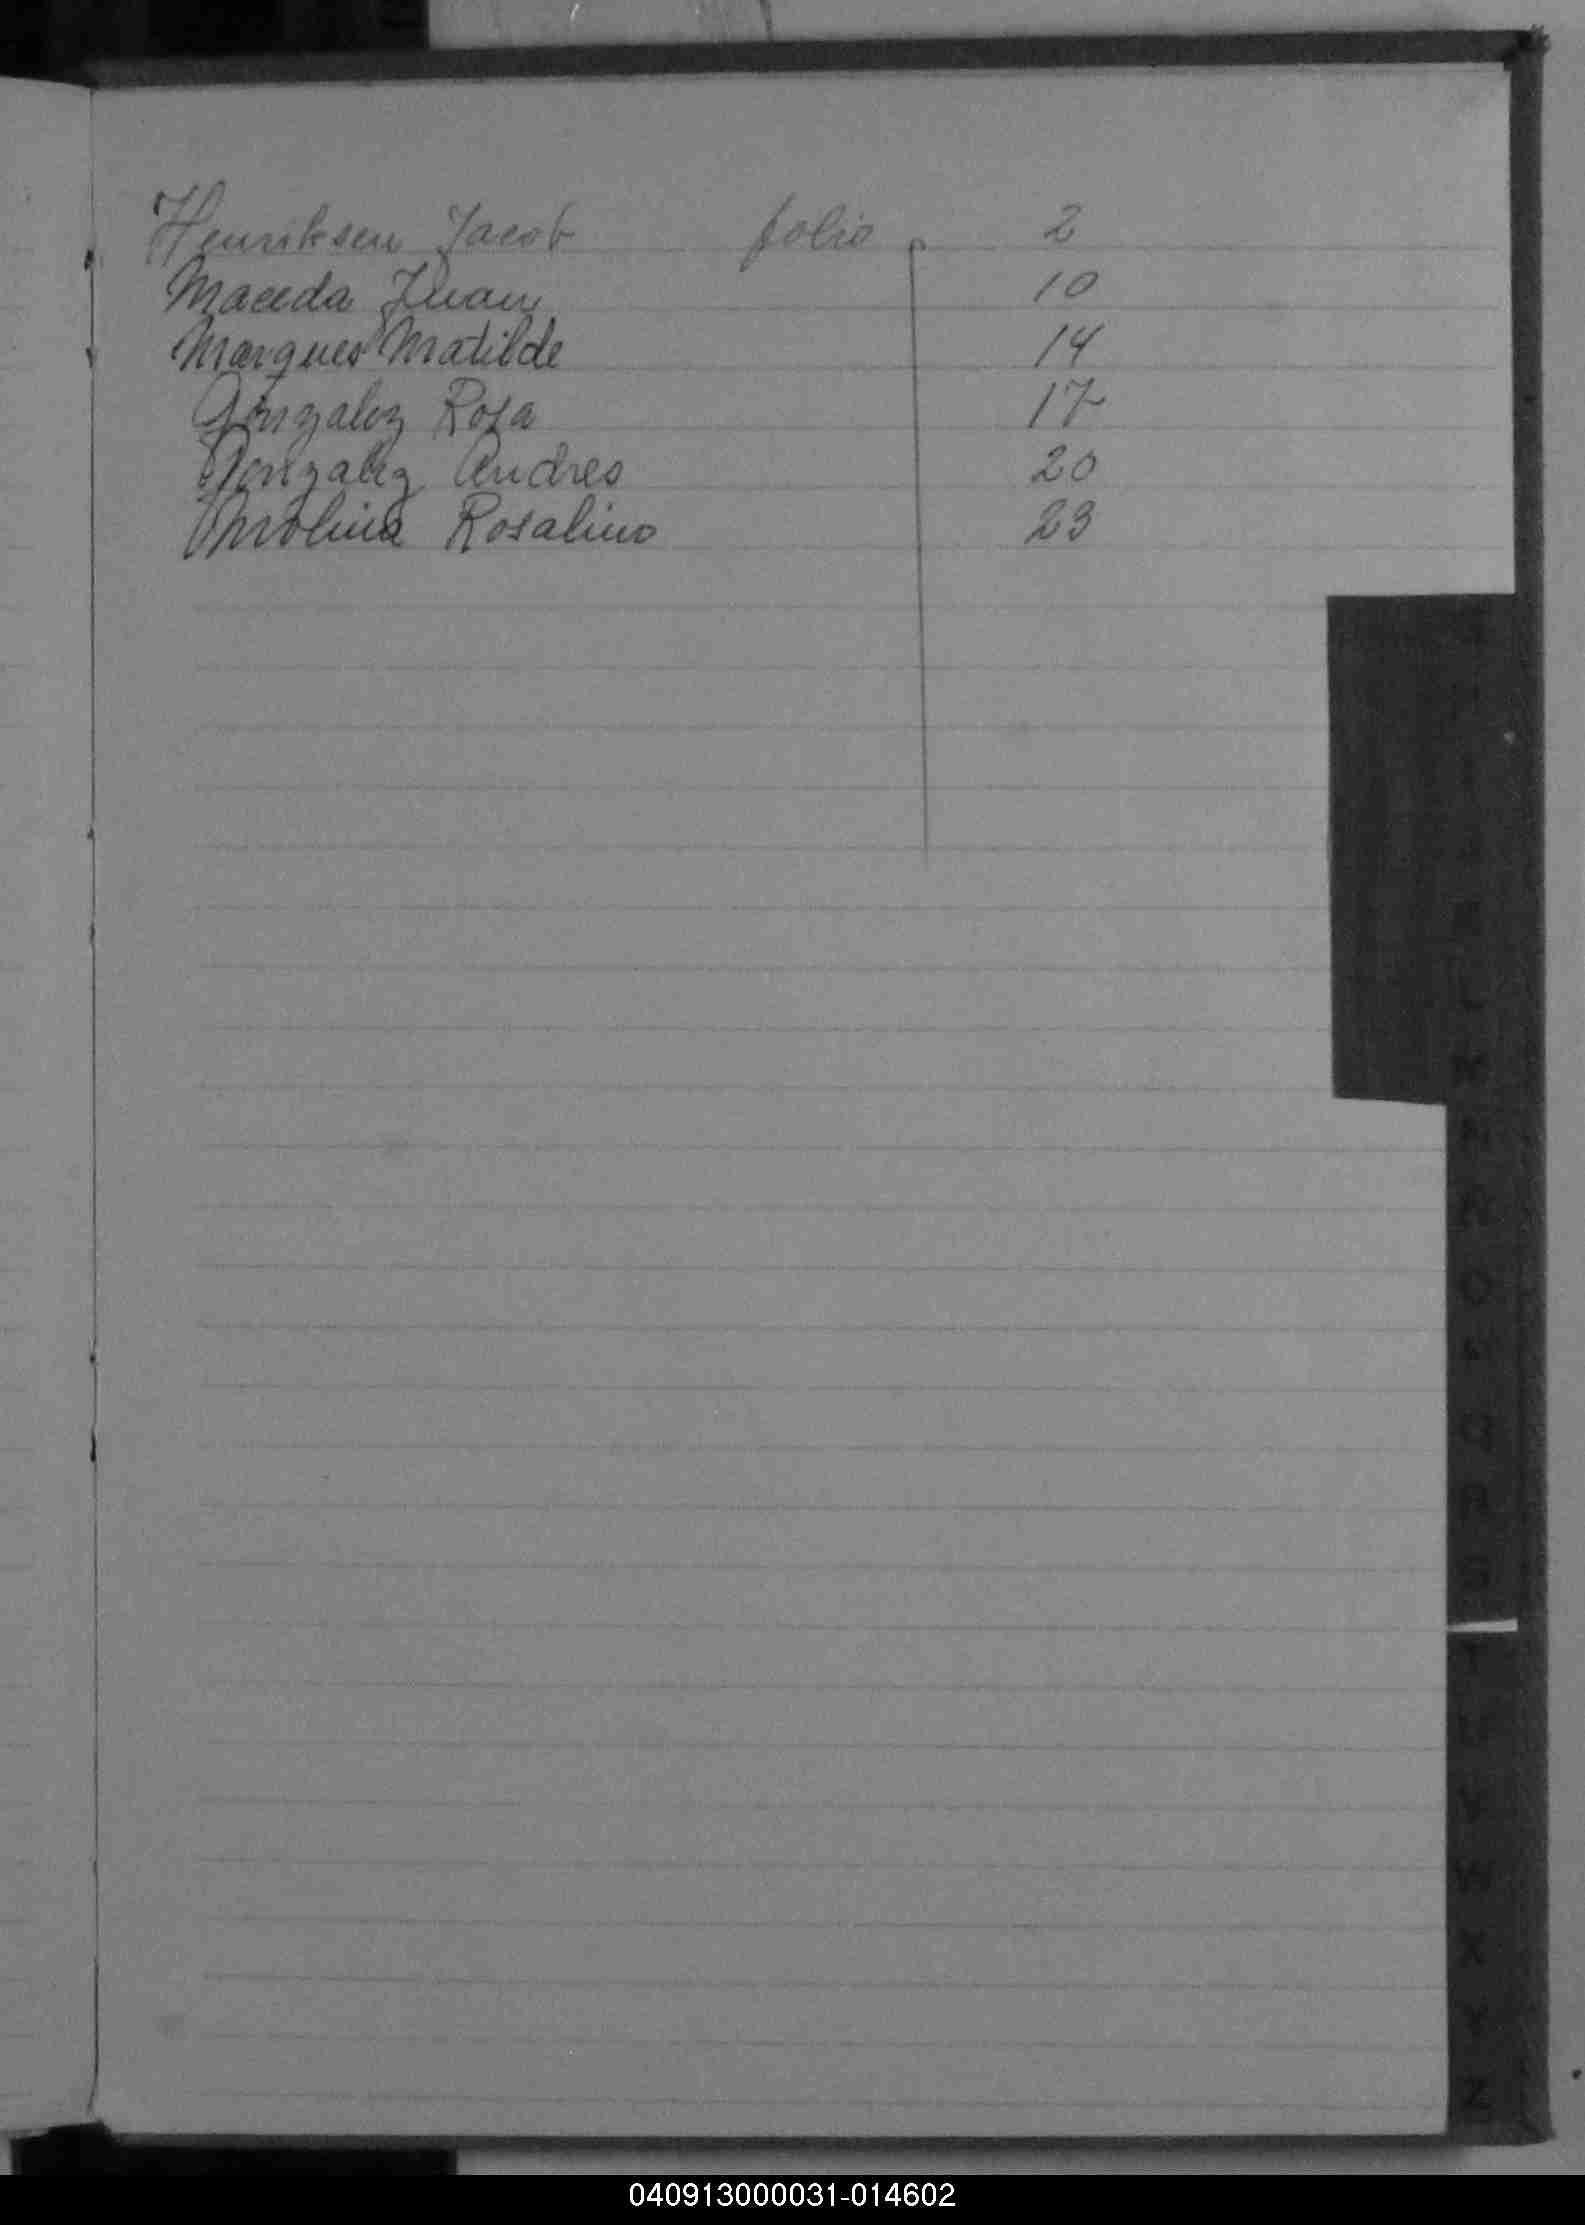 Henriksen Jacob folio 2
Maceda Juan 10
Marques Matilde 14
Gonzalez Rosa 17
Gonzalez Andres 20
Molina Rosalino 23
K
L
M
N
O
P
Q
R
S
T
U
V
W
X
Y
Z
040913000031-014602